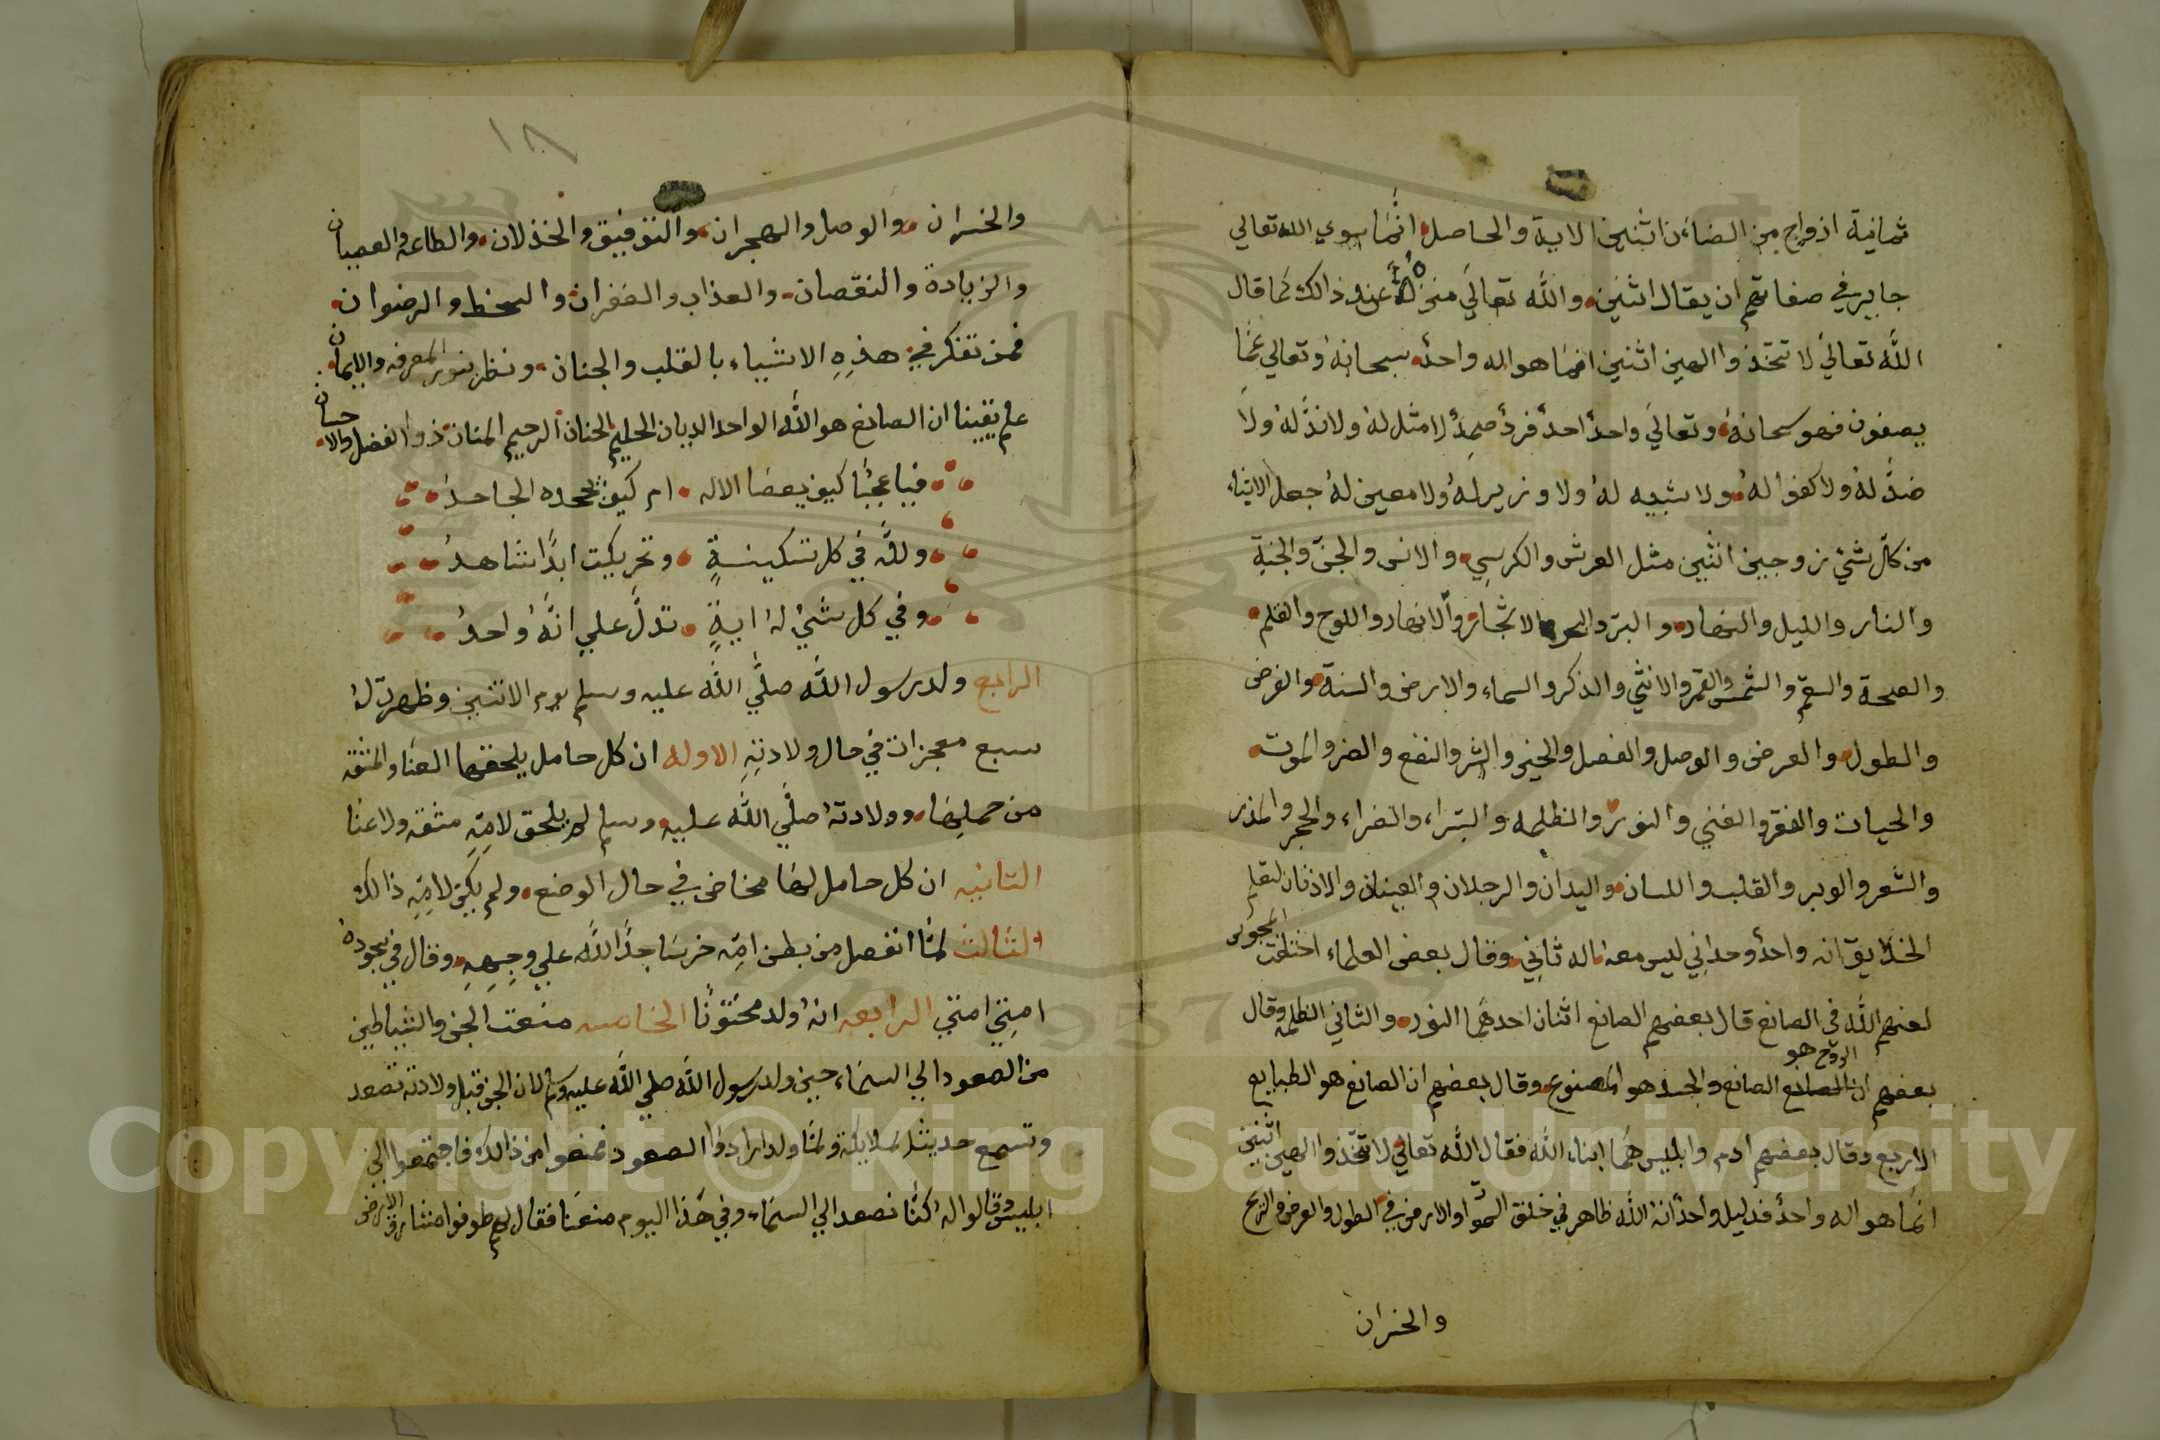 ثمانية ازواج من الضاءن اثنين الاية والحاصل انما سوي الله تعالي
جايز في صفاتهم ان يقال اثنين والله تعالي منزه عن ذالك كما قال
الله تعالي لا تتخذوا الهين اثنين انما هو اله واحد سبحانه وتعالي عما
يصفون فهو سبحانه وتعالي واحد احد فرد صمد لا مثل له ولا ند له ولا
ضد له ولا كفوا له ولا شبيه له ولا وزير له ولا معين له جعل الاشياء
من كل شئ زوجين اثنين مثل العرش والكرسي والانس والجن والجنة
والنار والليل والنهار والبر والبحر الاشجار والانهار واللوح والقلم
والصحة والسقم والشمس والقمر والانثي والذكر والسماء والارض والسنة والفرض
والطول والعرض والوصل والفصل والخير والشر والنفع والضر والموت
والحيات والفقر والغني والنور والظلمه والسراء والضراء والحجر والمدر
والشعر والوبر والقلب واللسان واليدان والرجلان والعينان والاذنان ليعلم
الخلايق انه واحد وحداني ليس معه اله ثاني وقال بعض العلماء اختلفت المجوس
لعنهم الله في الصانع قال بعضهم الصانع اثنان احدهما النور والثاني الظلمه وقال
بعضهم ان الروح هو الصانع والجسد هو المصنوع وقال بعضهم ان الصانع هو الطبايع
الاربع وقال بعضهم ادم وابليس هما ابناء الله فقال الله تعالي لا تتخذوا الهين اثنين
انما هو اله واحد فدليل واحد انه الله ظاهر في خلق السموا والارض في الطول والعرض والربح
والخسران
١٨
والخسران والوصل والهجران والتوفيق والخذلان والطاعه والعصيان
والزيادة والنقصان والعذاب والغفران والسخط والرضوان
فمن تفكر في هذه الاشياء بالقلب والجنان ونظر بنور المعرفه والايمان
علم يقينا ان الصانع هو الله الواحد الديان الحليم الحنان الرحيم المنان ذو الفضل والاحسان
فيا عجبا كيف يعصا الاله ام كيف يجحده الجاحد
ولله في كل تسكينة وتحريكت ابدا شاهد
وفي كل شئ له اية تدل علي انه واحد
الرابع ولد رسول الله صلي الله عليه وسلم يوم الاثنين وظهرت له
سبع معجزات في حال ولادته الاوله ان كل حامل يلحقها العنا والمشقه
من حملها وولادته صلي الله عليه وسلم لم يلحق لامه مشقه ولا عنا
الثانيه ان كل حامل لها مخاض في حال الوضع ولم يكن لامه ذالك
الثالث لما انفصل من بطن امه خر ساجدا لله علي وجهه وقال في سجوده
امتي امتي الرابعه انه ولد مختونا الخامسه منعت الجن والشياطين
من الصعود الي السماء حين ولد رسول الله صلي الله عليه وسلم لان الجن قبل ولادته تصعد
وتسمع حديث الملايكة ولما ولد ارادوا الصعود فمنعوا من ذالك فاجتمعوا الي
ابليس وقالوا له كنا نصعد الي السماء وفي هذا اليوم منعنا فقال لهم طوفوا مشارق الارض
Copyright © King Saud University
1957